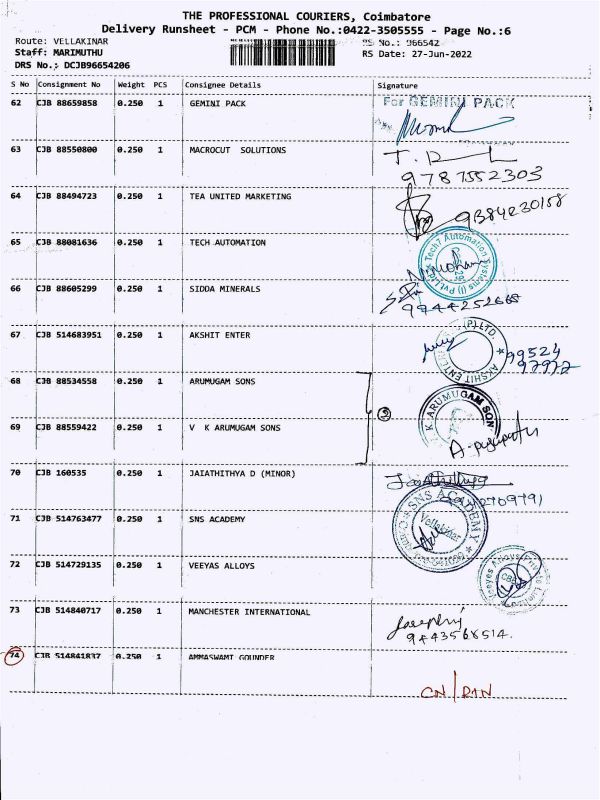 THE PROFESSIONAL COURIERS, Coimbatore
Delivery Runsheet - PCM - Phone No.:0422-3505555 - Page No.:6
Route: VELLAKINAR
RS No.: 966542
Staff: MARIMUTHU
RS Date: 27-Jun-2022
DRS No.: DCJB96654206
S No Consignment No Weight PCS Consignee Details Signature
62 CJB 88659858 0.250 1 GEMINI PACK For GEMINI PACK
63 CJB 88550800 0.250 1 MACROCUT SOLUTIONS
9787552303
64 CJB 88494723 0.250 1 TEA UNITED MARKETING
65 CJB 88081636 0.250 1 TECH AUTOMATION
66 CJB 88605299 0.250 1 SIDDA MINERALS
9944252668
67 CJB 514683951 0.250 1 AKSHIT ENTER
99524
97972
68 CJB 88534558 0.250 1 ARUMUGAM SONS
K. ARUMUGAM SON
69 CJB 88559422 0.250 1 V K ARUMUGAM SONS
70 CJB 160535 0.250 1 JAIATHITHYA D (MINOR)
71 CJB 514763477 0.250 1 SNS ACADEMY
SNS ACADEMY
Vellakinar
72 CJB 514729135 0.250 1 VEEYAS ALLOYS
73 CJB 514840717 0.250 1 MANCHESTER INTERNATIONAL
9443568514.
74 CJB 514841837 0.250 1 AMMASWAMI GOUNDER
CN/RTN